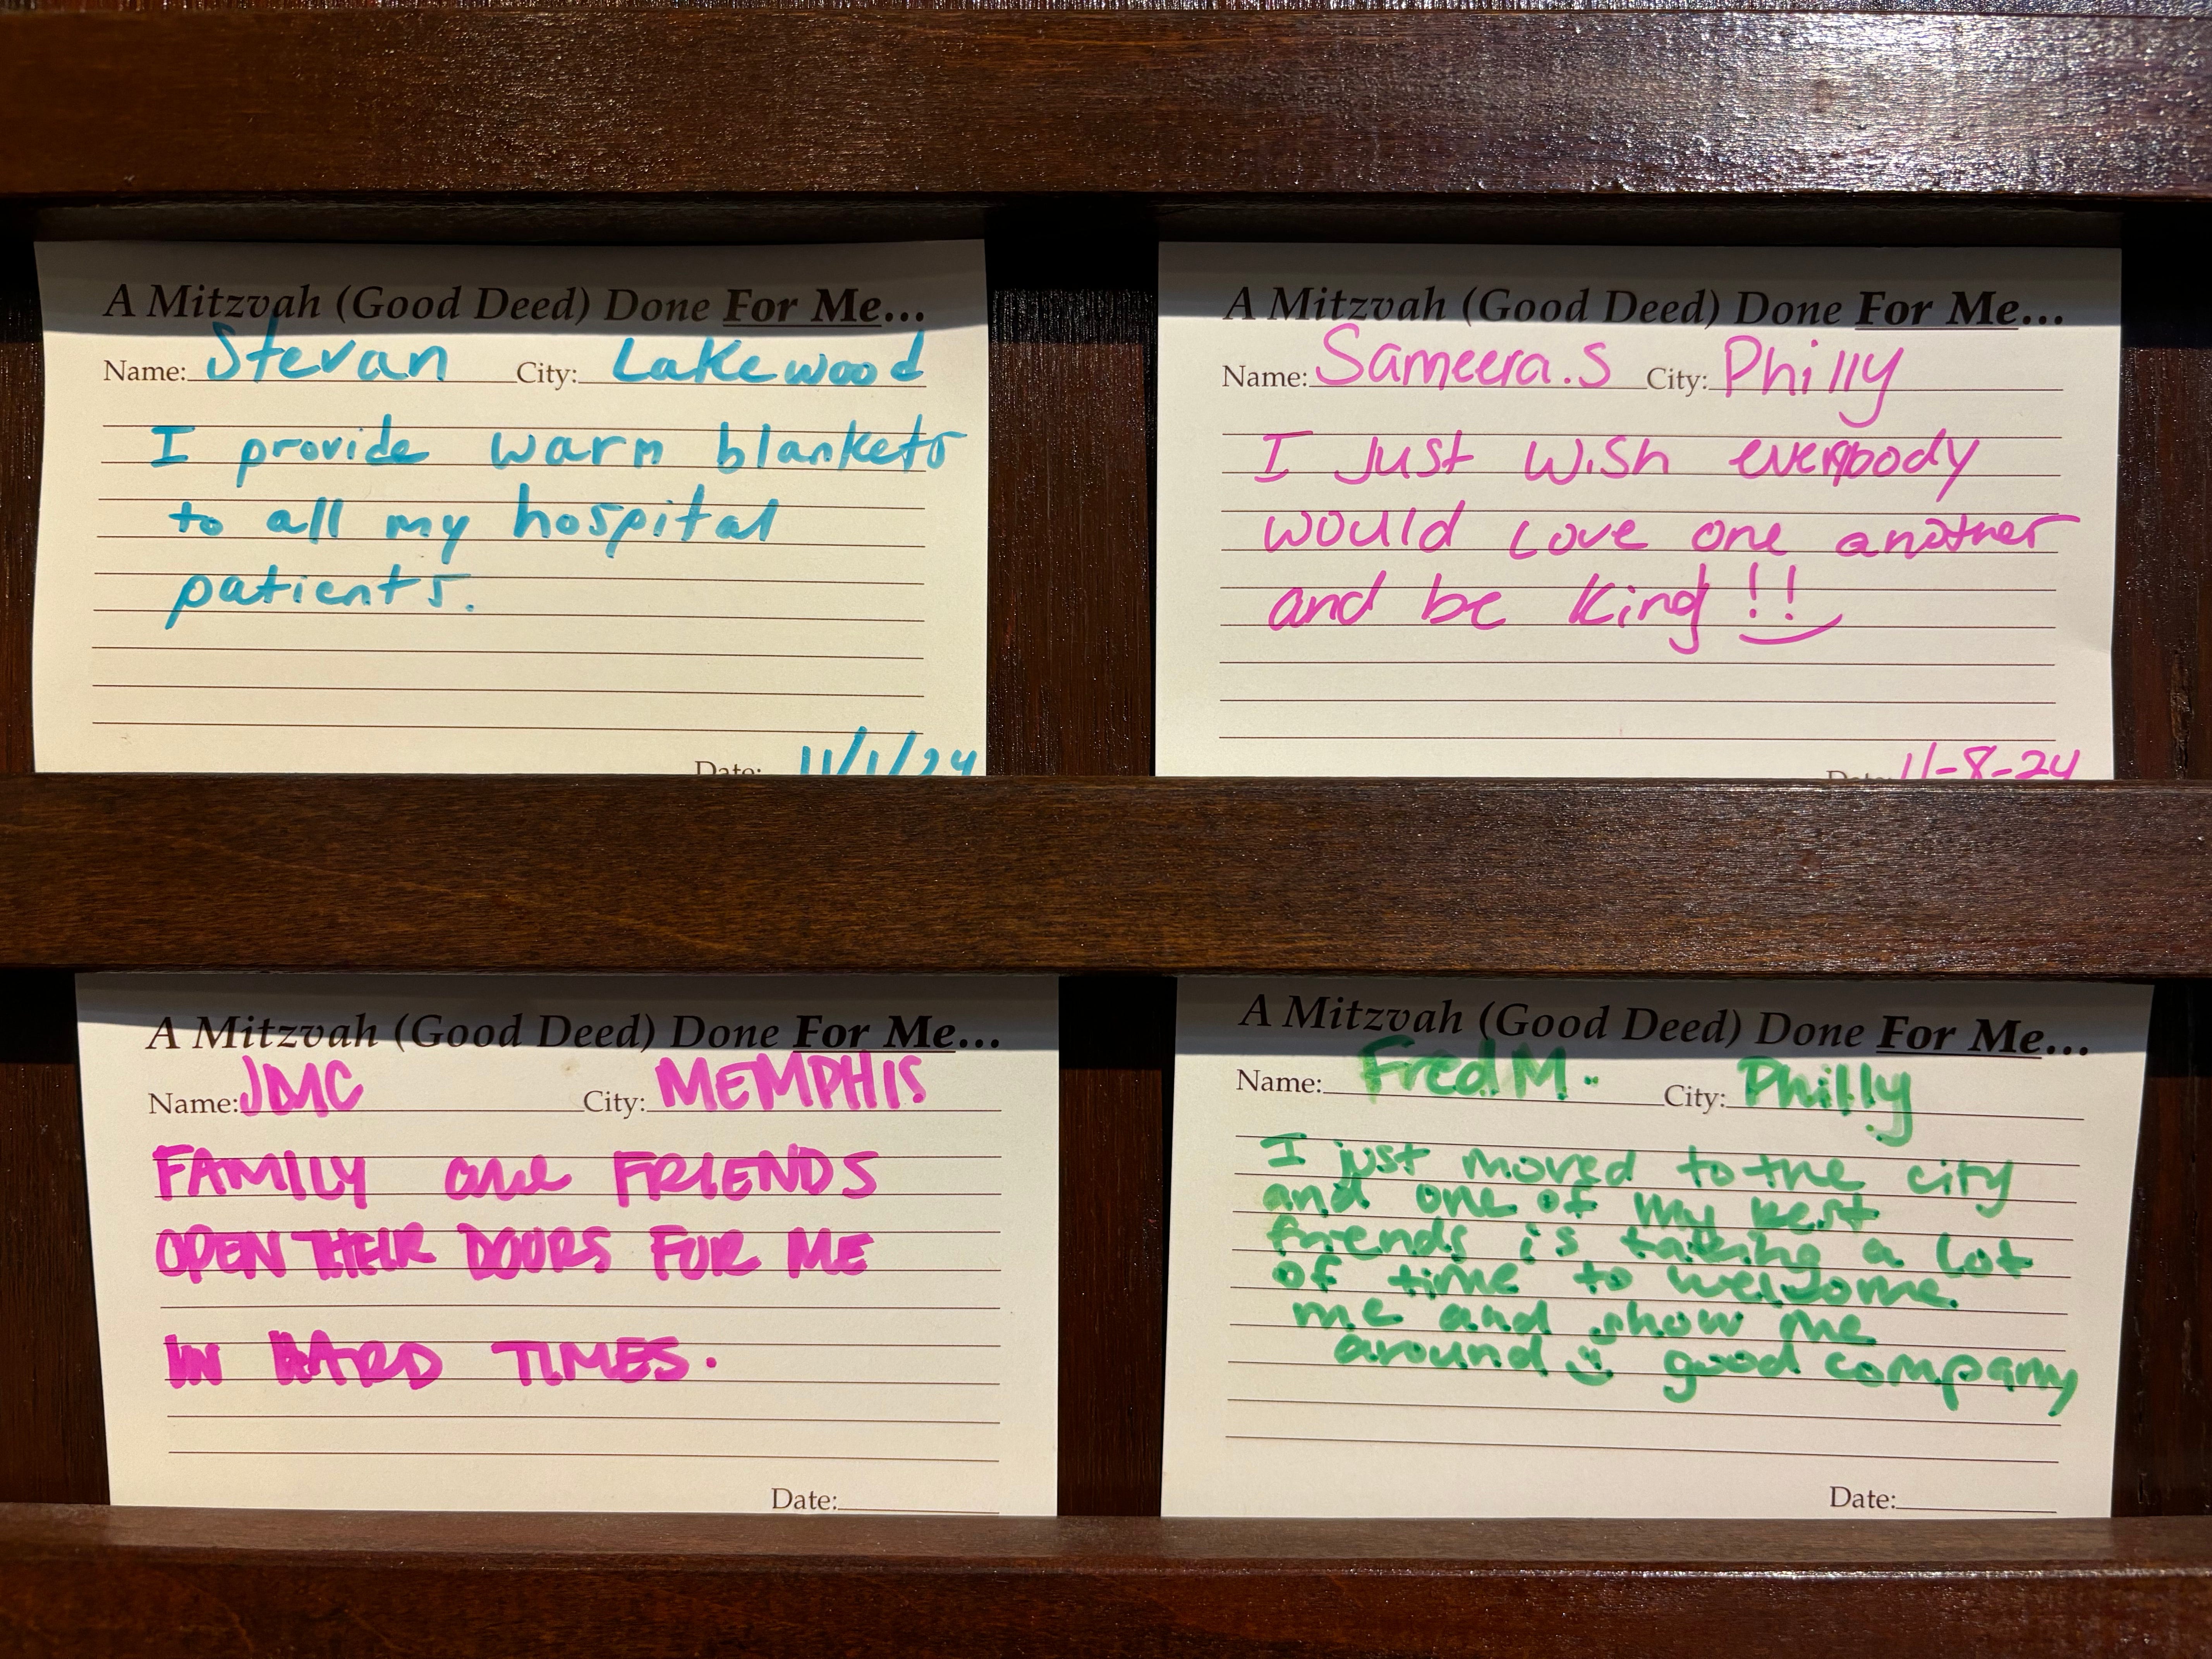 A Mitzvah (Good Deed) Done For Me...
Name: Stevan City: Lakewood
I provide warm blankets
to all my hospital
patients.
Date: 11/1/24
A Mitzvah (Good Deed) Done For Me...
Name: Sameera.S City: Philly
I Just wish everybody
would Love one another
and be kind!!
Date: 11-8-24
A Mitzvah (Good Deed) Done For Me...
Name: JMC City: MEMPHIS
FAMILY and FRIENDS
OPEN THEIR DOORS FOR ME
IN HARD TIMES.
Date:
A Mitzvah (Good Deed) Done For Me...
Name: Fred M. City: Philly
I just moved to the city
and one of my best
friends is taking a lot
of time to welcome
me and show me
around good company
Date: